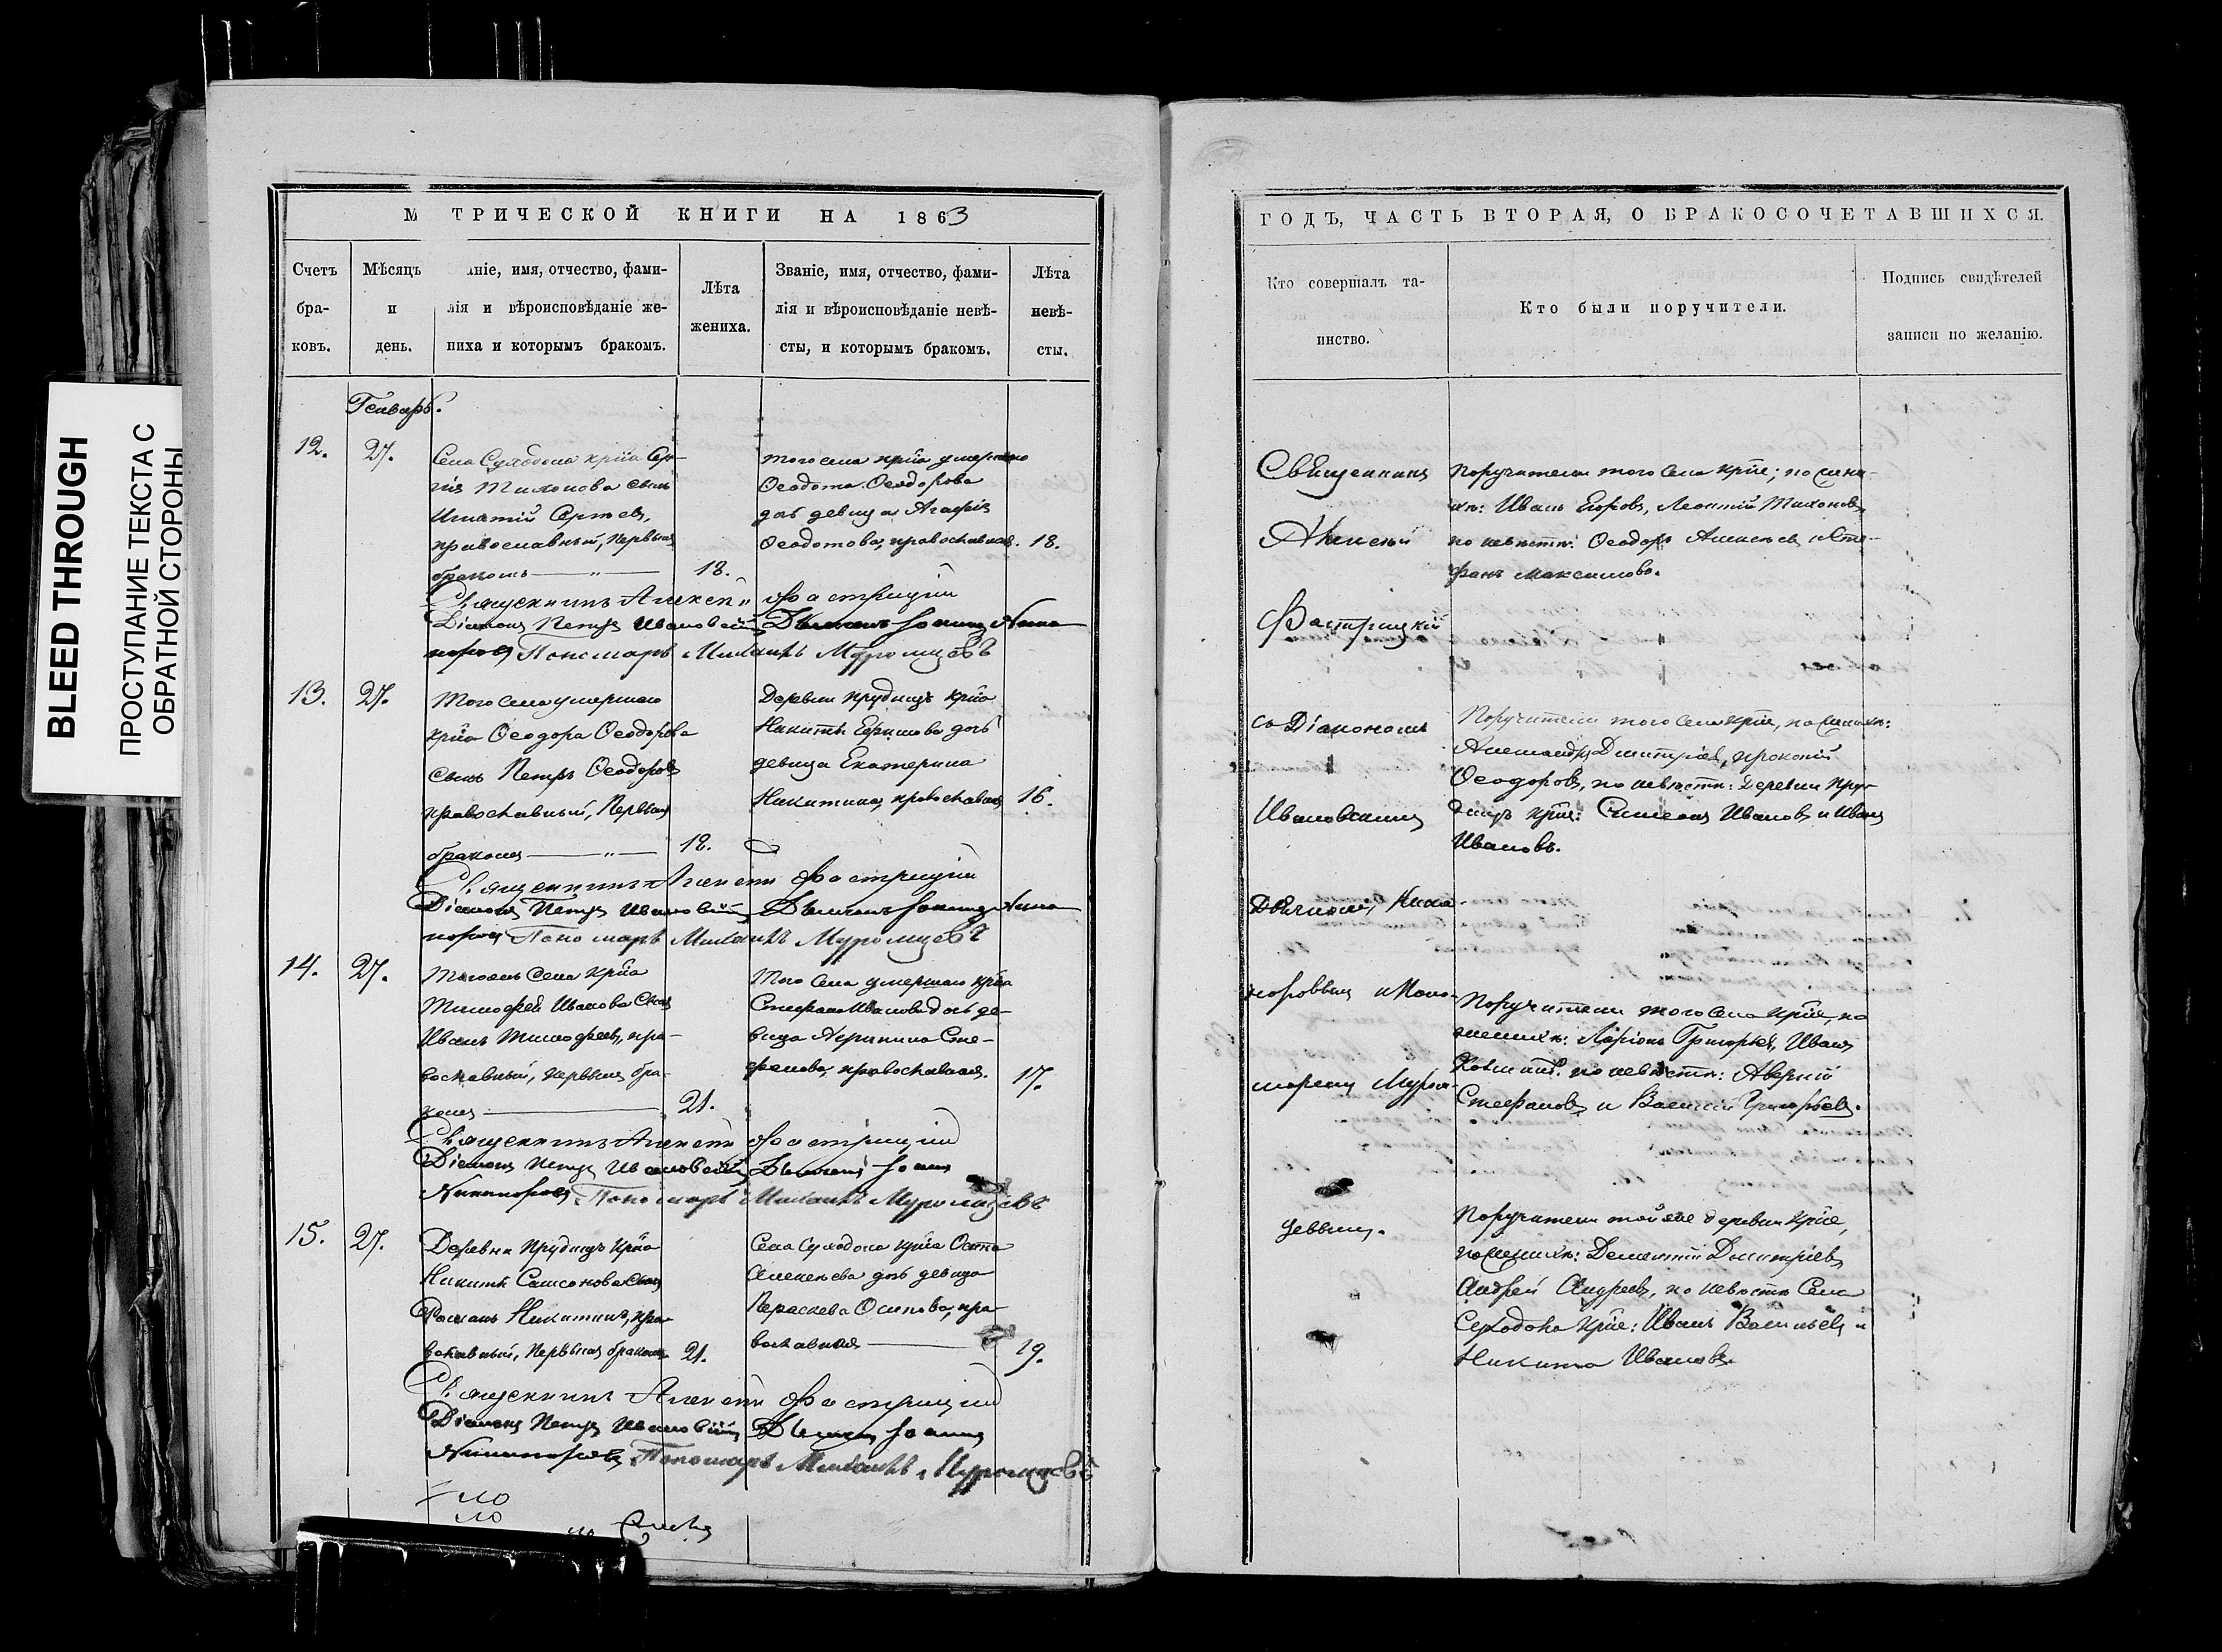 BLEED THROUGH
ПРОСТУПАНИЕ ТЕКСТА С
ОБРАТНОЙ СТОРОНЫ
М ТРИЧЕСКОЙ КНИГИ НА 1863
Счетъ
бра-
ковъ.
Мѣсяцъ
и
день.
ніе, имя, отчество, фами-
лія и вѣроисповѣданіе же-
ниха и которымъ бракомъ.
Лѣта
жениха.
Званіе, имя, отчество, фами-
лія и вѣроисповѣданіе невѣ-
сты, и которымъ бракомъ.
Лѣта
невѣ-
сты.
Генварь.
12.
27.
Села Суходола крѣа Сер-
гія Тихонова сынъ
Игнатій Сергѣевъ,
православный, первымъ
бракомъ
18.
того села крѣа умершаго
Ѳеодота Ѳеодорова
дочь девица Агафія
Ѳеодотова, православная.
18.
Священникъ Алексѣй Фастрицкій
Діаконъ Петръ Ивановскій Дьячекъ Іоаннъ Ника-
норовъ Пономарь Михаилъ Муромцевъ
13.
27.
Того села умершаго
крѣа Ѳеодора Ѳеодорова
сынъ Петръ Ѳеодоровъ
православный, первымъ
бракомъ
18.
Деревни Прудищъ крѣа
Никиты Ефимова дочь
девица Екатерина
Никитина, православная
16.
Священникъ Алексѣй Фастрицкій
Діаконъ Петръ Ивановскій Дьячекъ Іоаннъ Ника-
норовъ Пономарь Михаилъ Муромцевъ
14.
27.
Тогожъ села крѣа
Тимофея Иванова сынъ
Иванъ Тимофеевъ, пра-
вославный, первымъ бра-
комъ
21.
Того села умершаго крѣа
Стефана Иванова дочь де-
вица Акрипина Сте-
фанова, православная.
17.
Священникъ Алексѣй Фастрицкій
Діаконъ Петръ Ивановскій Дьячекъ Іоаннъ
Никаноровъ Пономарь Михаилъ Муромцевъ
15.
27.
Деревни Прудищъ крѣа
Никиты Самсонова сынъ
Романъ Никитинъ, пра-
вославный, первымъ бракомъ
21.
Села Суходола крѣа Осипа
Алексеева дочь девица
Параскева Осипова, пра-
вославная
19.
Священникъ Алексѣй Фастрицкій
Діаконъ Петръ Ивановскій Дьячекъ Іоаннъ
Никаноровъ Пономарь Михаилъ Муромцевъ
ГОДЪ, ЧАСТЬ ВТОРАЯ, О БРАКОСОЧЕТАВШИХСЯ.
Кто совершалъ та-
инство.
Кто были поручители.
Подпись свидѣтелей
записи по желанію.
Священникъ
Алексѣй
Фастрицкій
съ Діакономъ
Ивановскимъ
Дьячкомъ, Ника-
норовымъ и Поно-
маремъ Муром-
цевымъ.
Поручители того села крѣе; по жени-
хѣ: Иванъ Егоровъ, Леонтій Тихоновъ,
по невѣстѣ: Ѳеодоръ Алексѣевъ и Сте-
фанъ Максимовъ.
Поручители того села крѣе, по женихѣ:
Александръ Дмитріевъ, Прокопій
Ѳеодоровъ, по невѣстѣ: Деревни Пру-
дищъ крѣе: Симеонъ Ивановъ и Иванъ
Ивановъ.
Поручители того села крѣе, по
женихѣ: Ларіонъ Григорьевъ, Иванъ
по невѣстѣ: Аверкій
Стефановъ и Василій Григорьевъ.
Поручители той же деревни крѣе,
по женихѣ: Дементій Дмитріевъ,
Андрей Андреевъ, по невѣстѣ Села
Суходола крѣе: Иванъ Васильевъ и
Никита Ивановъ.